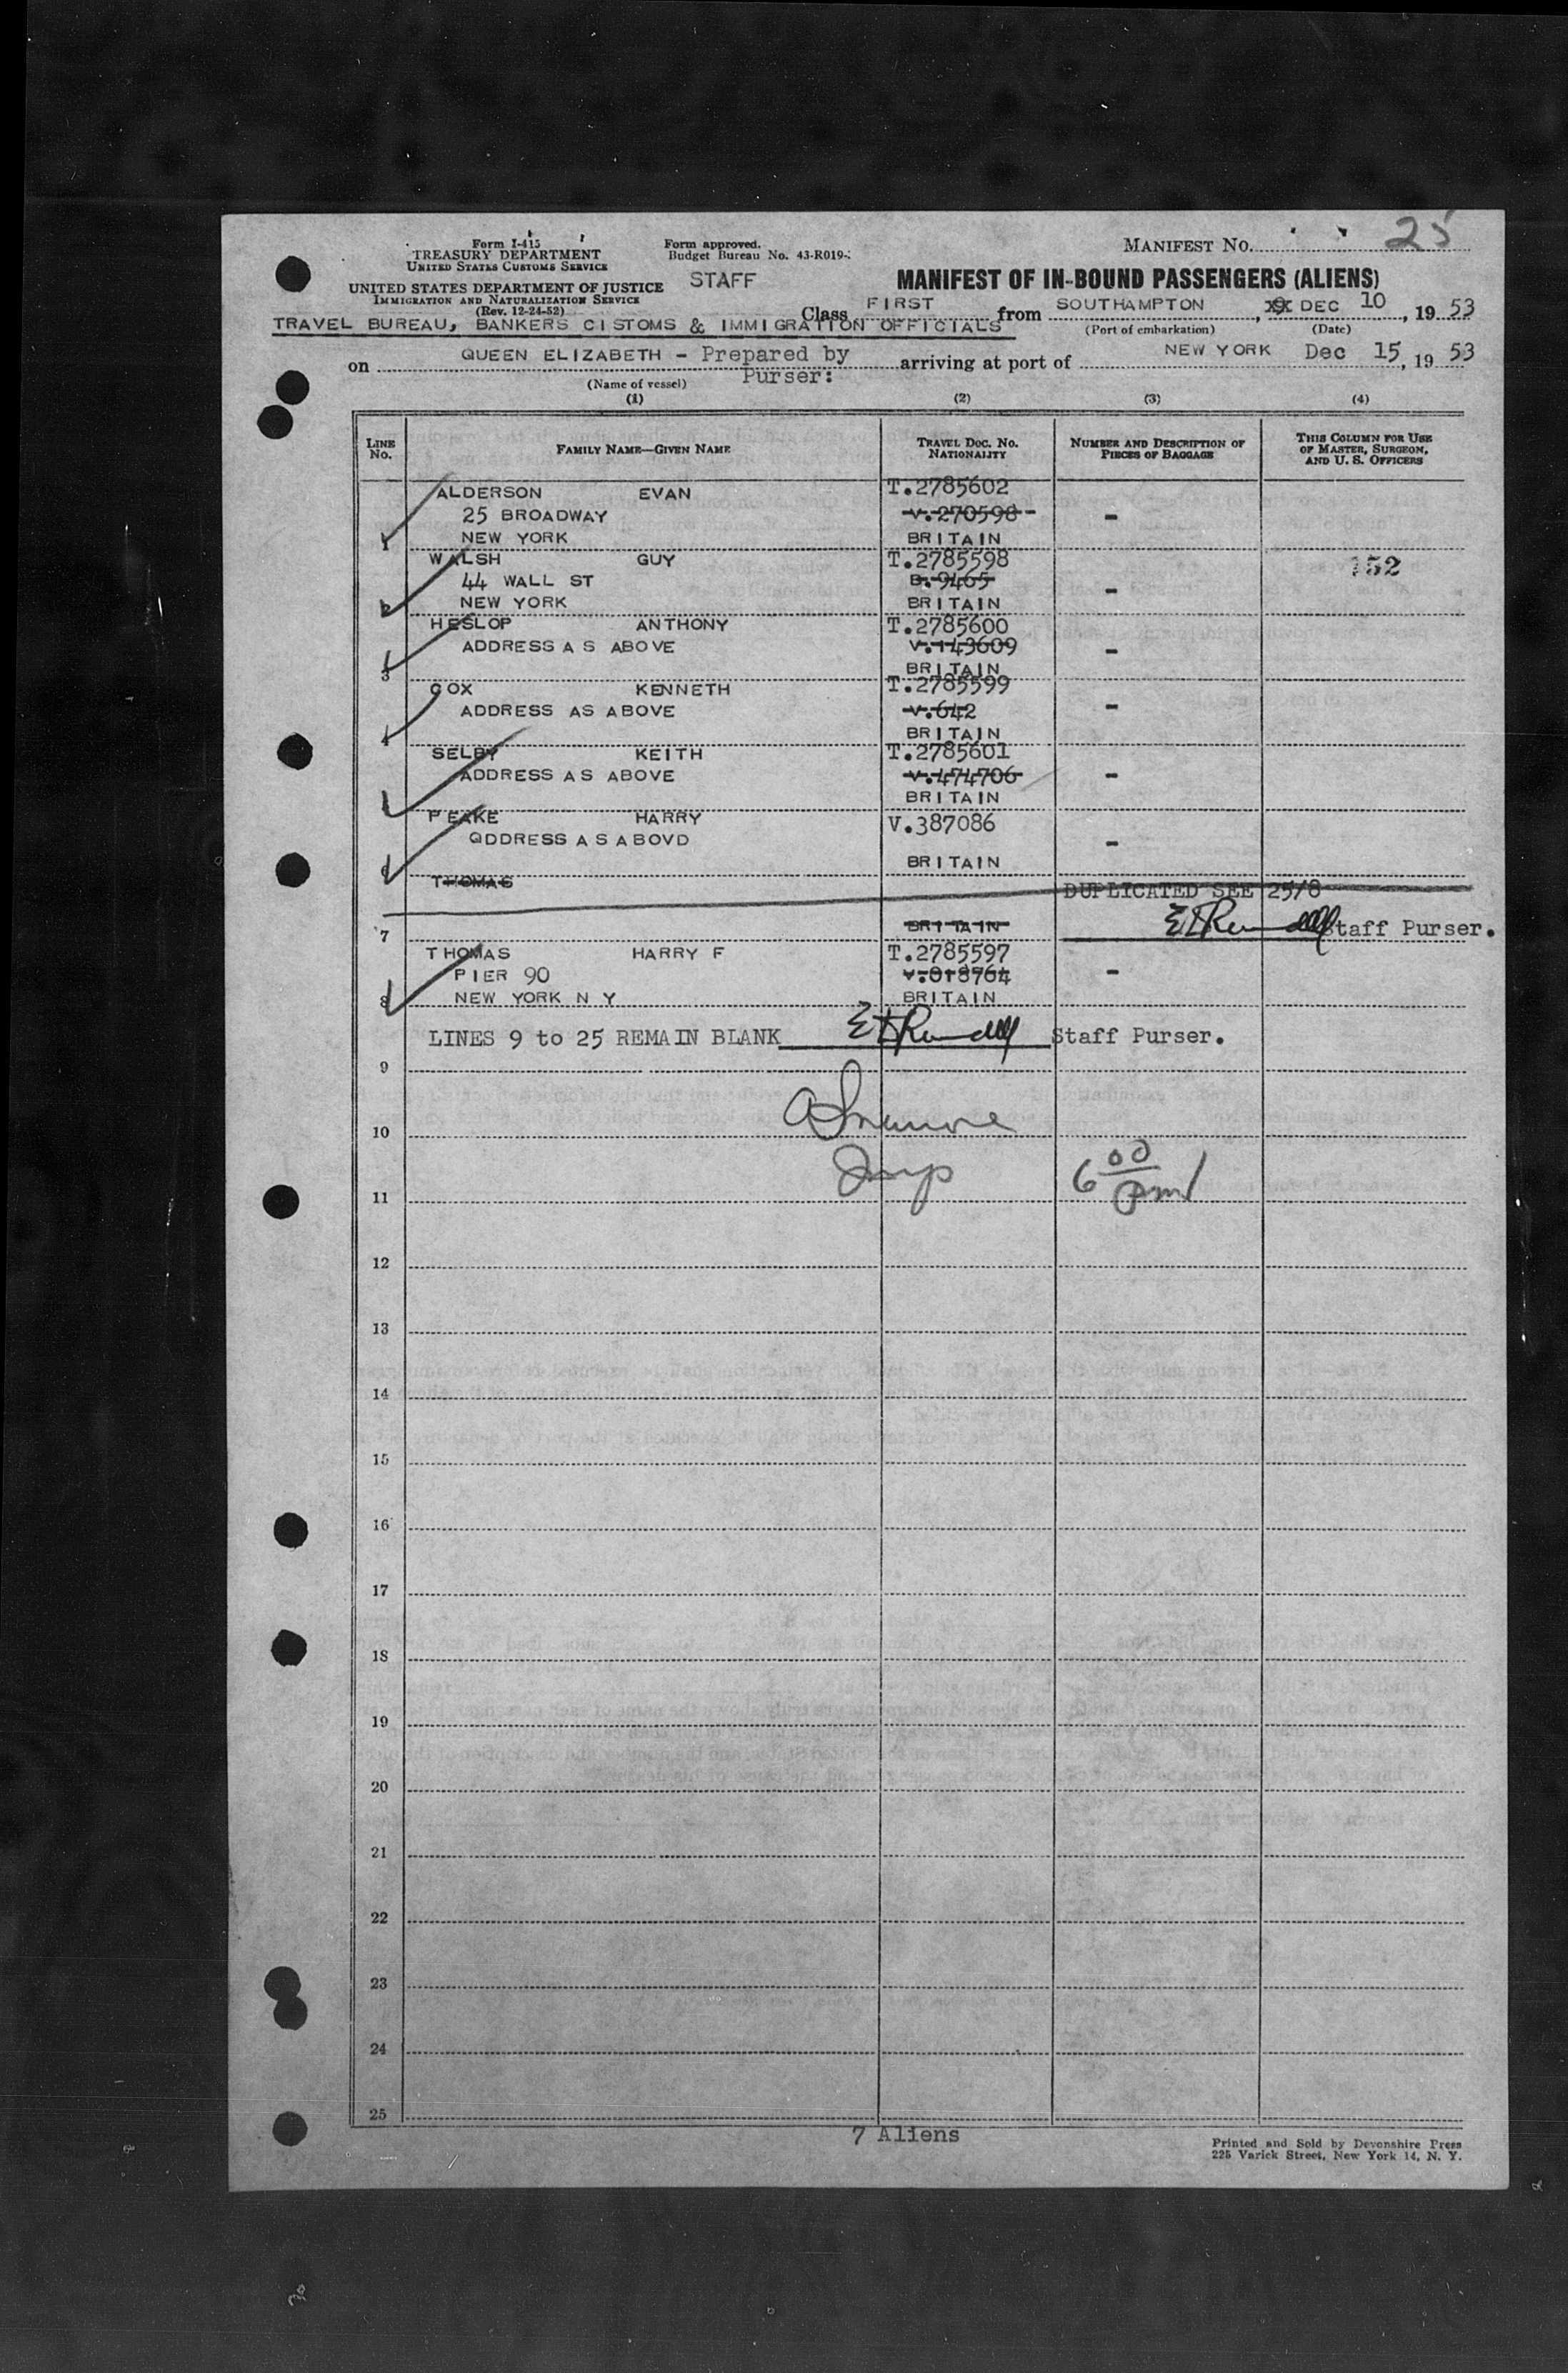 Form I-415
TREASURY DEPARTMENT
UNITED STATES CUSTOMS SERVICE
UNITED STATES DEPARTMENT OF JUSTICE
IMMIGRATION AND NATURALIZATION SERVICE
(Rev. 12-24-52)
Form approved.
Budget Bureau No. 43-R019-
STAFF
MANIFEST NO. 25
MANIFEST OF IN-BOUND PASSENGERS (ALIENS)
Class FIRST from SOUTHAMPTON, DEC 10, 1953
TRAVEL BUREAU, BANKERS CISTOMS & IMMIGRATION OFFICIALS
(Port of embarkation) (Date)
on QUEEN ELIZABETH - Prepared by arriving at port of NEW YORK Dec 15, 19 53
Purser:
(Name of vessel)
(1) (2) (3) (4)
LINE No. FAMILY NAME—GIVEN NAME TRAVEL DOC. NO. NATIONALITY NUMBER AND DESCRIPTION OF PIECES OF BAGGAGE THIS COLUMN FOR USE OF MASTER, SURGEON, AND U. S. OFFICERS
ALDERSON EVAN T.2785602
25 BROADWAY V.270598 -
1 NEW YORK BRITAIN
WALSH GUY T.2785598 152
44 WALL ST B.9465 -
2 NEW YORK BRITAIN
HESLOP ANTHONY T.2785600
ADDRESS AS ABOVE V.143609 -
3 BRITAIN
COX KENNETH T.2785599
ADDRESS AS ABOVE V.642 -
4 BRITAIN
SELBY KEITH T.2785601
ADDRESS AS ABOVE V.474706 -
BRITAIN
PEAKE HARRY V.387086
QDDRESS AS ABOVD -
6 BRITAIN
THOMAS DUPLICATED SEE 25/8
7 BRITAIN Staff Purser.
THOMAS HARRY F T.2785597
PIER 90 V.018764 -
8 NEW YORK N Y BRITAIN
LINES 9 to 25 REMAIN BLANK Staff Purser.
9
10
Insp 6 00 pm
11
12
13
14
15
16
17
18
19
20
21
22
23
24
25
7 Aliens
Printed and Sold by Devonshire Press
225 Varick Street, New York 14, N. Y.